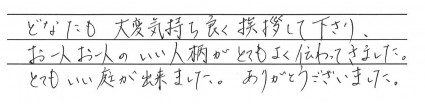 どなたも 大変気持ち良く挨拶して下さり、
お一人お一人の いい人柄が とてもよく伝わってきました。
とてもいい庭が出来ました。 ありがとうございました。